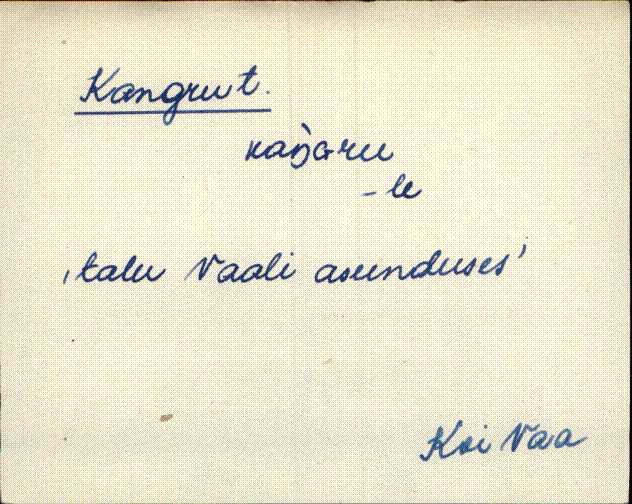 Kangru t.
kaŋGru
-le
‚talu Vaali asunduses’
Koi Vaa